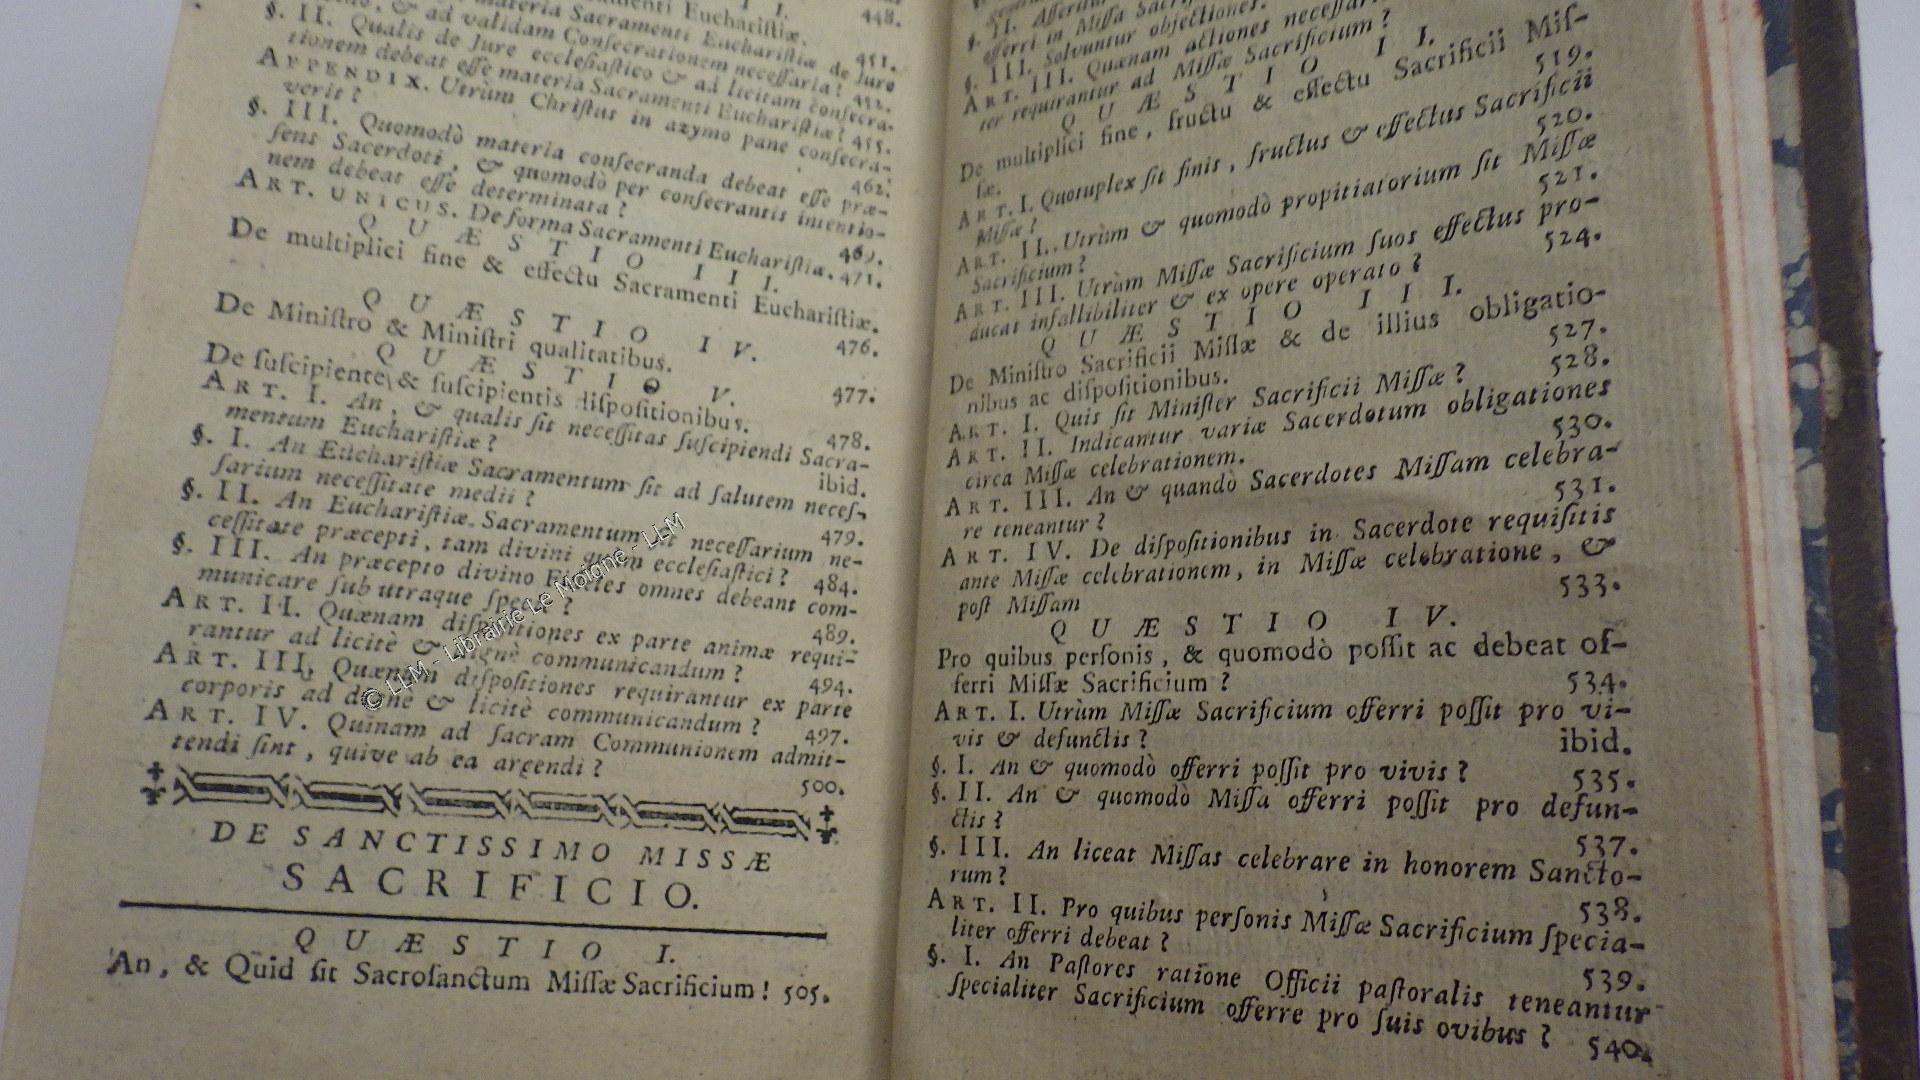 448.
materia Sacramenti Euchariſtiæ.
451.
§. II. Qualis de Jure eccleſiaſtico & ad licitam conſecra-
tionem debeat eſſe materia Sacramenti Euchariſtiæ? 455.
APPENDIX. Utrùm Chriſtus in azymo pane conſecra-
verit?
462.
§. III. Quomodò materia conſecranda debeat eſſe præ-
ſens Sacerdoti, & quomodò per conſecrantis intentio-
nem debeat eſſe determinata?
469.
ART. UNICUS. De forma Sacramenti Euchariſtiæ. 471.
QUÆSTIO III.
De multiplici fine & effectu Sacramenti Euchariſtiæ.
476.
QUÆSTIO IV.
De Miniſtro & Miniſtri qualitatibus.
477.
QUÆSTIO V.
De ſuſcipiente & ſuſcipientis diſpoſitionibus.
478.
ART. I. An, & qualis ſit neceſſitas ſuſcipiendi Sacra-
mentum Euchariſtiæ?
ibid.
§. I. An Euchariſtiæ Sacramentum ſit ad ſalutem neceſ-
ſarium neceſſitate medii?
479.
§. II. An Euchariſtiæ Sacramentum ſit neceſſarium ne-
ceſſitate præcepti, tam divini quam eccleſiaſtici? 484.
§. III. An præcepto divino Fideles omnes debeant com-
municare ſub utraque ſpecie?
489.
ART. II. Quænam diſpoſitiones ex parte animæ requi-
rantur ad licitè & dignè communicandum?
494.
ART. III. Quænam diſpoſitiones requirantur ex parte
corporis ad dignè & licitè communicandum?
497.
ART. IV. Quinam ad ſacram Communionem admit-
tendi ſint, quive ab ea arcendi?
500.
DE SANCTISSIMO MISSÆ
SACRIFICIO.
QUÆSTIO I.
An, & Quid ſit Sacroſanctum Miſſæ Sacrificium! 505.
offerri in Miſſa
§. III. Solvuntur objectiones.
ART. III. Quænam actiones neceſſa
ter requirantur ad Miſſæ Sacrificium?
QUÆSTIO II.
De multiplici fine, fructu & effectu Sacrificii Miſ-
ſæ.
519.
ART. I. Quotuplex ſit finis, fructus & effectus Sacrificii
Miſſæ?
520.
ART. II. Utrùm & quomodò propitiatorium ſit Miſſæ
Sacrificium?
521.
ART. III. Utrùm Miſſæ Sacrificium ſuos effectus pro-
ducat infallibiliter & ex opere operato?
524.
QUÆSTIO III.
De Miniſtro Sacrificii Miſſæ & de illius obligatio-
nibus ac diſpoſitionibus.
527.
ART. I. Quis ſit Miniſter Sacrificii Miſſæ?
528.
ART. II. Indicantur variæ Sacerdotum obligationes
circa Miſſæ celebrationem.
530.
ART. III. An & quandò Sacerdotes Miſſam celebra-
re teneantur?
531.
ART. IV. De diſpoſitionibus in Sacerdote requiſitis
ante Miſſæ celebrationem, in Miſſæ celebratione, &
poſt Miſſam
533.
QUÆSTIO IV.
Pro quibus perſonis, & quomodò poſſit ac debeat of-
ferri Miſſæ Sacrificium?
534.
ART. I. Utrùm Miſſæ Sacrificium offerri poſſit pro vi-
vis & defunctis?
ibid.
§. I. An & quomodò offerri poſſit pro vivis?
535.
§. II. An & quomodò Miſſa offerri poſſit pro defun-
ctis?
537.
§. III. An liceat Miſſas celebrare in honorem Sancto-
rum?
538.
ART. II. Pro quibus perſonis Miſſæ Sacrificium ſpecia-
liter offerri debeat?
539.
§. I. An Paſtores ratione Officii paſtoralis teneantur
ſpecialiter Sacrificium offerre pro ſuis ovibus?
540.
© LLM - Librairie Le Moiane - LLM